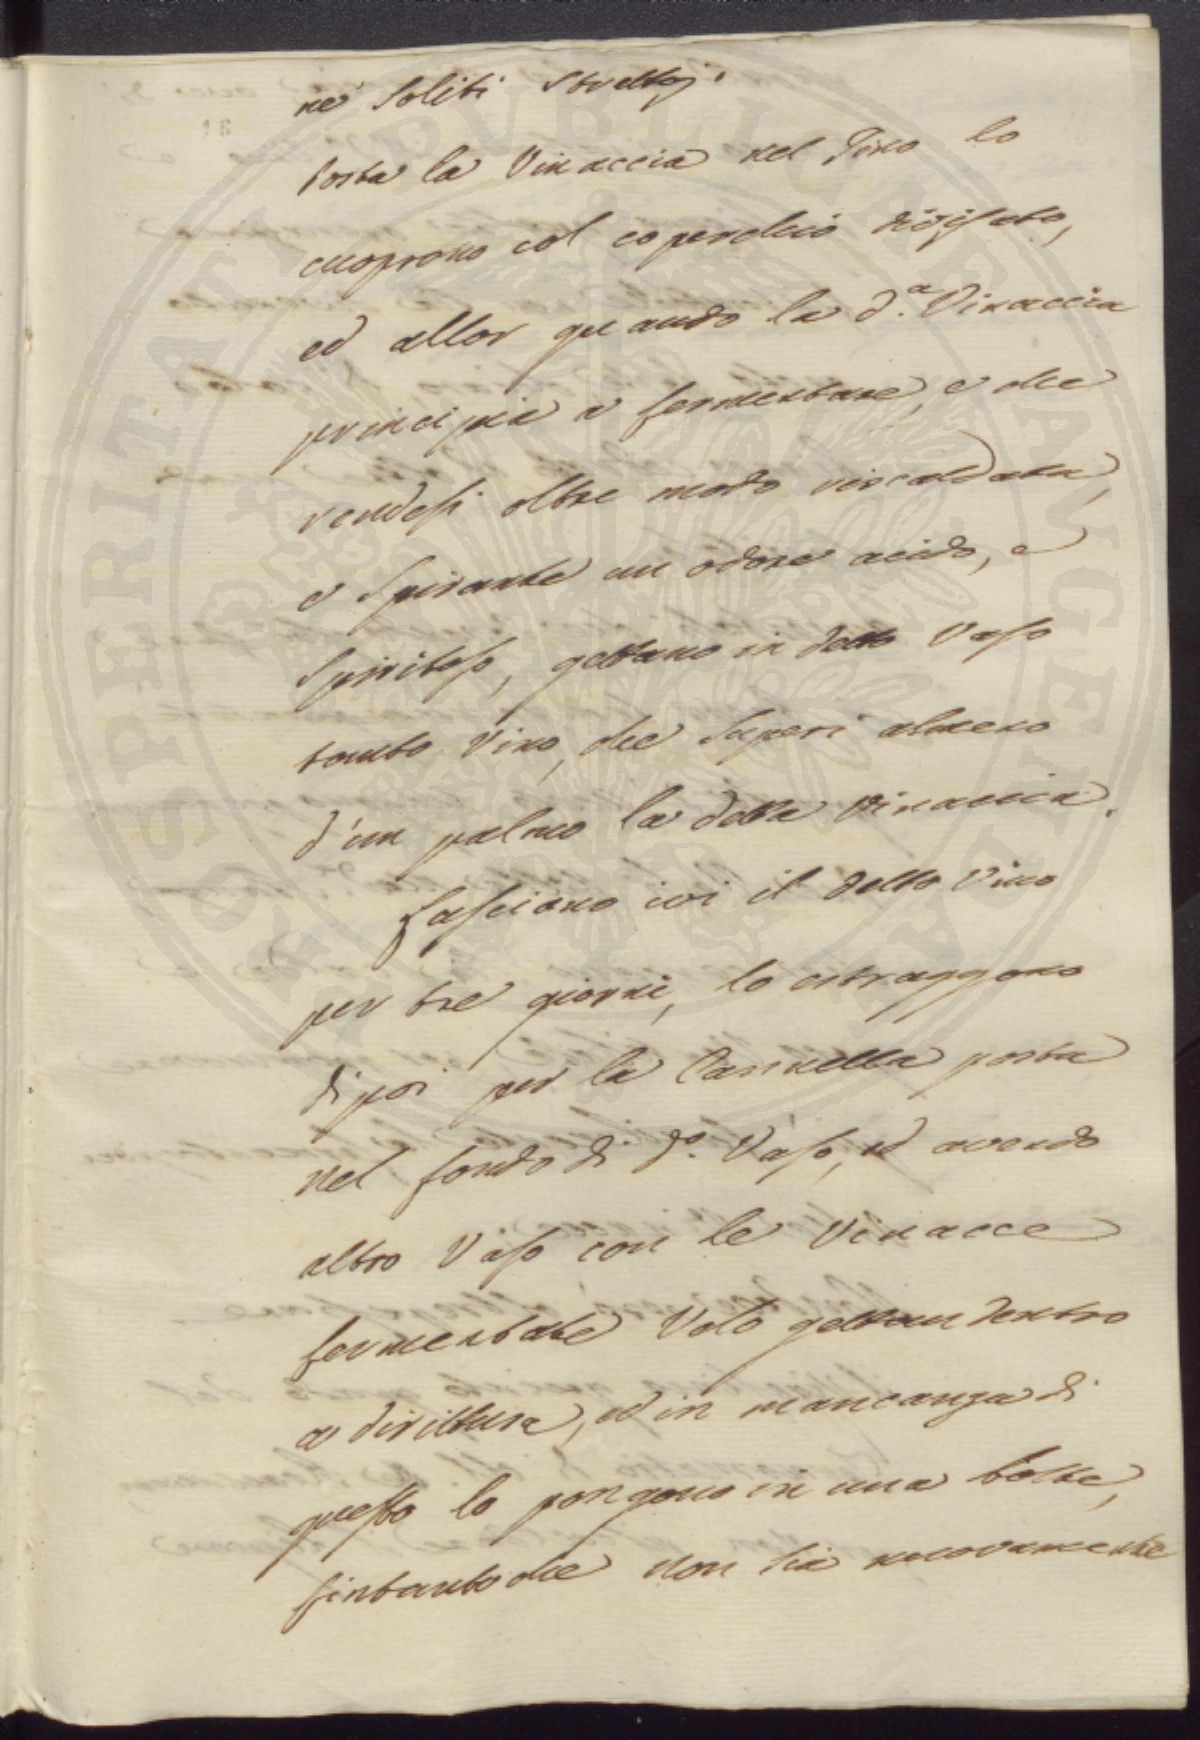 ne' soliti strettoj.
Posta la Vinaccia nel Tino lo
cuoprono col coperchio
ed allor quando la d.ª Vinaccia
principia a fermentare, e che
rendesi oltre modo riscaldata,
e spirante un odore acido, e
spiritoso, gettano in detto Vaso
tanto Vino, che superi almeno
d'un palmo la detta Vinaccia.
Lasciano ivi il detto Vino
per tre giorni, lo estraggono
di poi per la Cannella posta
nel fondo di d.º Vaso, ed avendo
altro Vaso con le Vinacce
fermentate Volo gettan dentro
a dirittura, ed in mancanza di
questo lo pongono in una botte,
fintanto che non sia nuovamente
PROSPERITATI PVBLICAE AVGENDAE
16